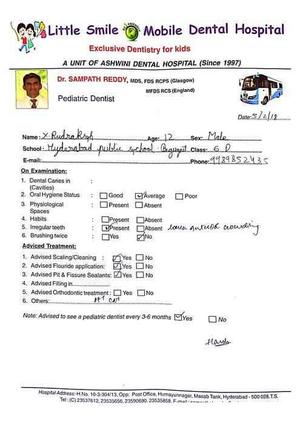 Little Smile Mobile Dental Hospital
Exclusive Dentistry for kids
A UNIT OF ASHWINI DENTAL HOSPITAL (Since 1997)
Dr. SAMPATH REDDY, MDS, FDS RCPS (Glasgow)
MFDS RCS (England)
Pediatric Dentist
Date: 5/2/18
Name: Age: 12 Sex: Male
School: Hyderabad public school Class: 6 D
E-mail: Phone:
On Examination:
1. Dental Caries in (Cavities) :
2. Oral Hygiene Status : Good Average Poor
3. Physiological Spaces : Present Absent
4. Habits : Present Absent
5. Irregular teeth : Present Absent lower crowding
6. Brushing twice : Yes No
Adviced Treatment:
1. Advised Scaling/Cleaning : Yes No
2. Advised Fluoride application: Yes No
3. Advised Pit & Fissure Sealants: Yes No
4. Advised Filling in
5. Advised Orthodontic treatment : Yes No
6. Others:
Note: Advised to see a pediatric dentist every 3-6 months Yes No
Hospital Address: H.No. 10-3-304/13, Opp: Post Office, Humayunnagar, Masab Tank, Hyderabad - 500 028.T.S.
Tel: (C) 23537612, 23535656, 23590680, 23535858,